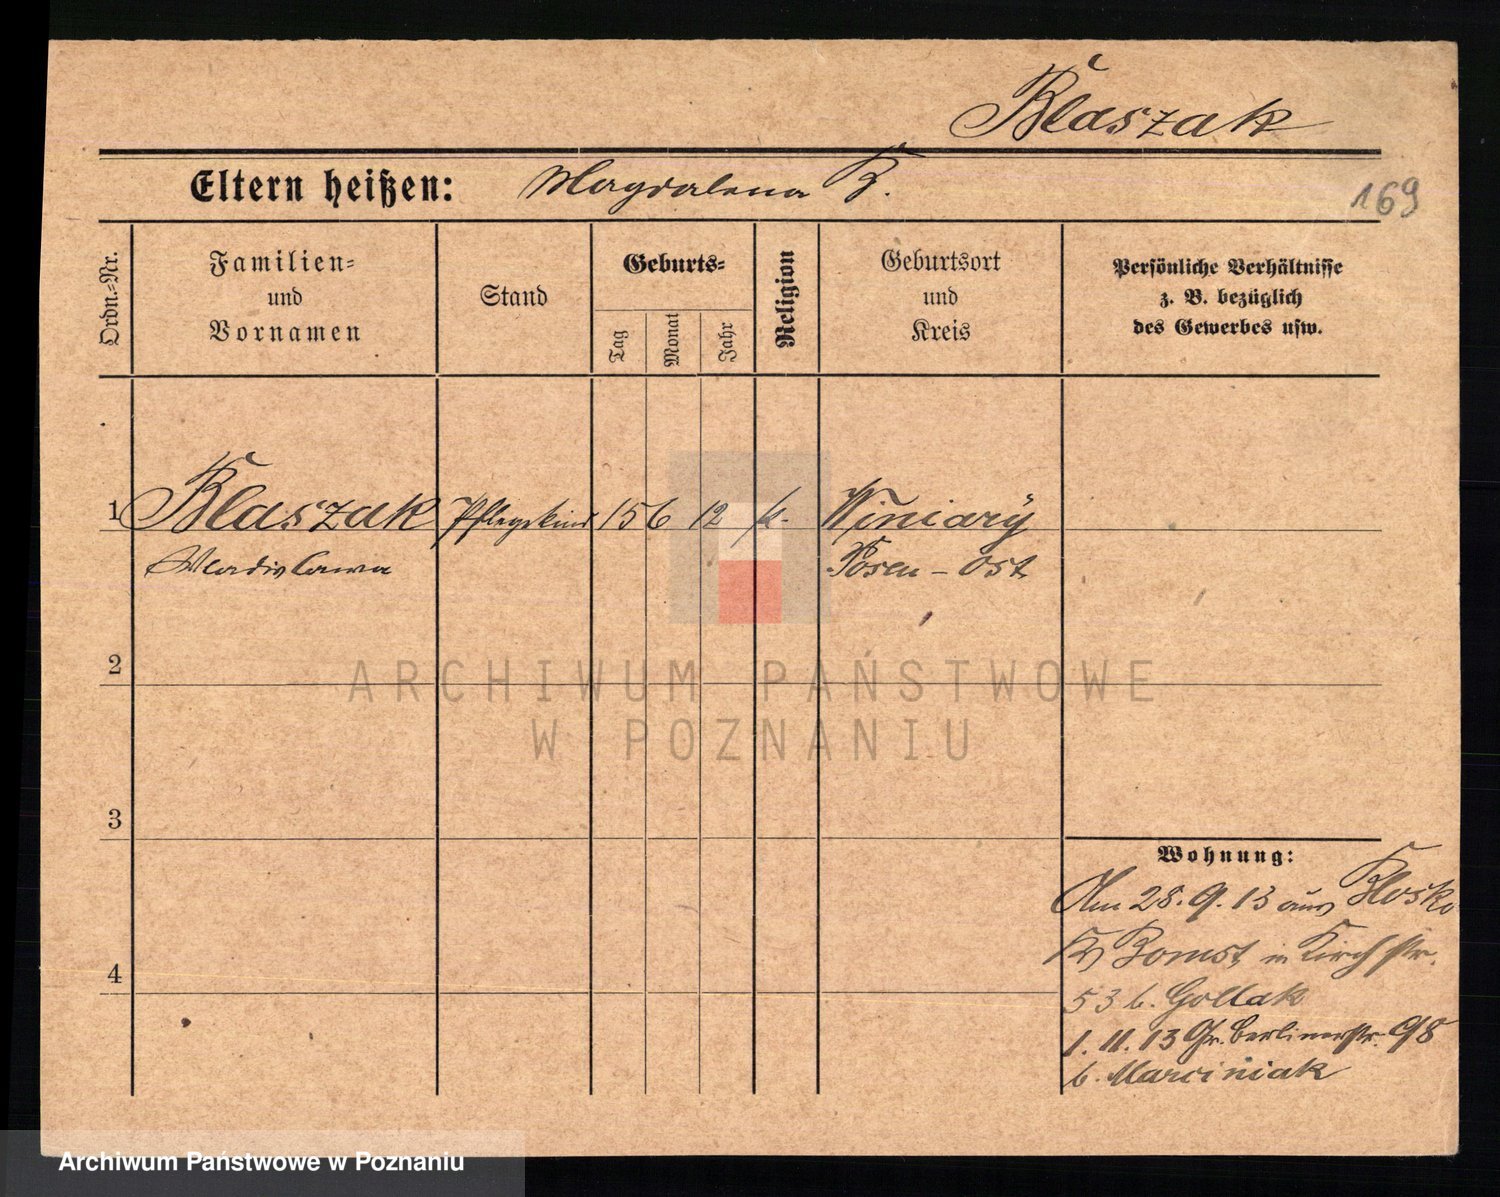 Blaszak
Eltern heißen: Magdalena B.
169
Ordn.-Nr.
Familien-
und
Vornamen
Stand
Geburts-
Tag
Monat
Jahr
Religion
Geburtsort
und
Kreis
Persönliche Verhältnisse
z. B. bezüglich
des Gewerbes usw.
1 Blaszak Pflegekind 15 6 12 k. Winiary
Wladislawa Posen - Ost
2
3
4
Wohnung:
Am 28. 9. 13 aus
Bomst in Kirchstr.
53 b. Gollak
1. 11. 13 Gr. Berlinerstr. 98
b. Marciniak
ARCHIWUM PAŃSTWOWE
W POZNANIU
Archiwum Państwowe w Poznaniu